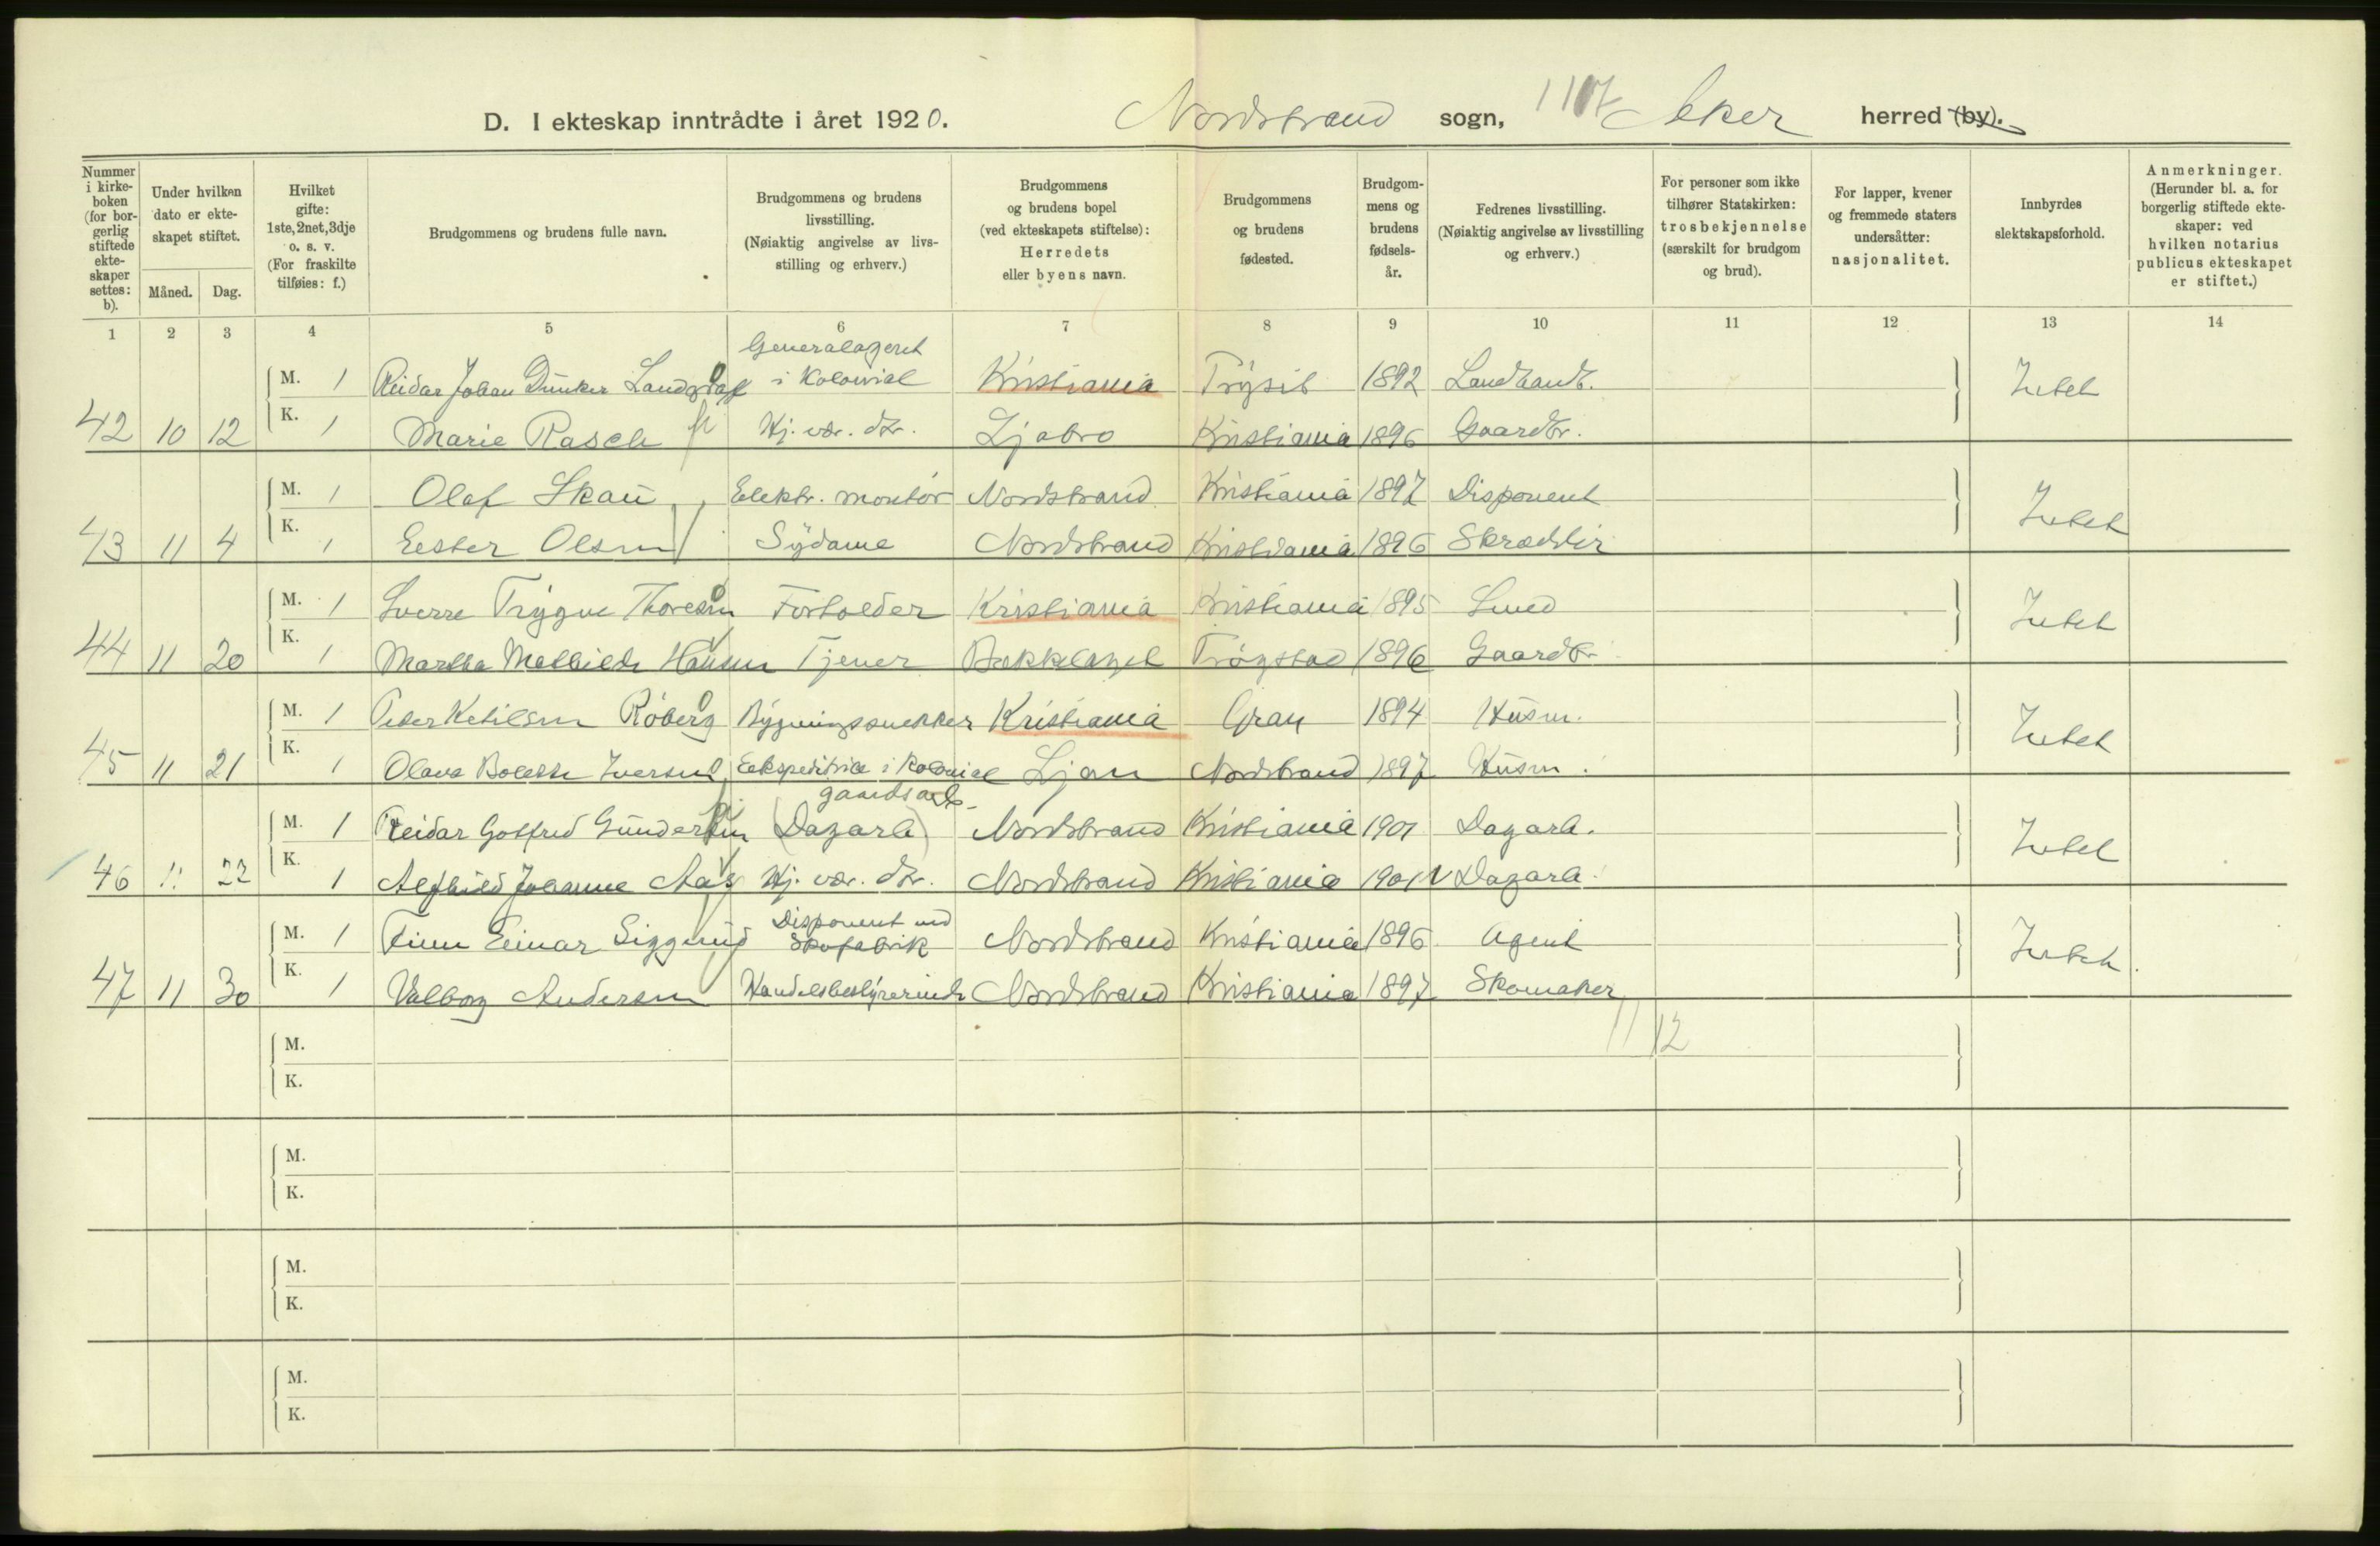 D. I ekteskap inntrådte i året 1920. Nordstrand sogn, 1107 Aker herred (by).
Nummer i kirke-boken (for bor-gerlig stiftede ekte-skaper settes: b).
Under hvilken dato er ekte-skapet stiftet.
Måned. Dag.
Hvilket gifte: 1ste, 2net, 3dje o. s. v. (For fraskilte tilføies: f.)
Brudgommens og brudens fulle navn.
Brudgommens og brudens livsstilling. (Nøiaktig angivelse av livs-stilling og erhverv.)
Brudgommens og brudens bopel (ved ekteskapets stiftelse): Herredets eller byens navn.
Brudgommens og brudens fødested.
Brudgom-mens og brudens fødsels-år.
Fedrenes livsstilling. (Nøiaktig angivelse av livsstilling og erhverv.)
For personer som ikke tilhører Statskirken: trosbekjennelse (særskilt for brudgom og brud).
For lapper, kvener og fremmede staters undersåtter: nasjonalitet.
Innbyrdes slektskapsforhold.
Anmerkninger. (Herunder bl. a. for borgerlig stiftede ekte-skaper: ved hvilken notarius publicus ekteskapet er stiftet.)
1 2 3 4 5 6 7 8 9 10 11 12 13 14
Generalagent
M. 1 Reidar Johan Dunker i Kolonial Kristiania Trysil 1892 Landhand. Intet
42 10 12 K. 1 Marie Rasch Hj. vær. dtr. Ljabro Kristiania 1896 Gaardbr.
M. 1 Olaf Skau Elektr. montør Nordstrand Kristiania 1897 Disponent Intet
43 11 4 K. 1 Ester Olsen Sydame Nordstrand Kristiania 1896 Skrædder
M. 1 Sverre Trygve Thoresen Forholder Kristiania Kristiania 1895 Smed Intet
44 11 20 K. 1 Martha Mathilde Hansen Tjener Bækkelaget Trøgstad 1896 Gaardbr
M. 1 Peder Ketilsen Røberg Bygningssnekker Kristiania Gran 1894 Husm. Intet
45 11 21 K. 1 Olava Bolette Iversen Ekspeditrice i Kolonial Ljan Nordstrand 1897 Husm.
gaardsarb.
M. 1 Reidar Gotfred Gundersen (Dagarb) Nordstrand Kristiania 1901 Dagarb. Intet
46 11 22 K. 1 Alfhild Johanne Aas Hj. vær. dtr. Nordstrand Kristiania 1901 Dagarb.
Disponent ved
M. 1 Finn Einar Siggerud Skofabrik Nordstrand Kristiania 1896 Agent Intet.
47 11 30 K. 1 Valborg Andersen Handelsbestyrerinde Nordstrand Kristiania 1897 Skomaker
11 12
M.
K.
M.
K.
M.
K.
M.
K.